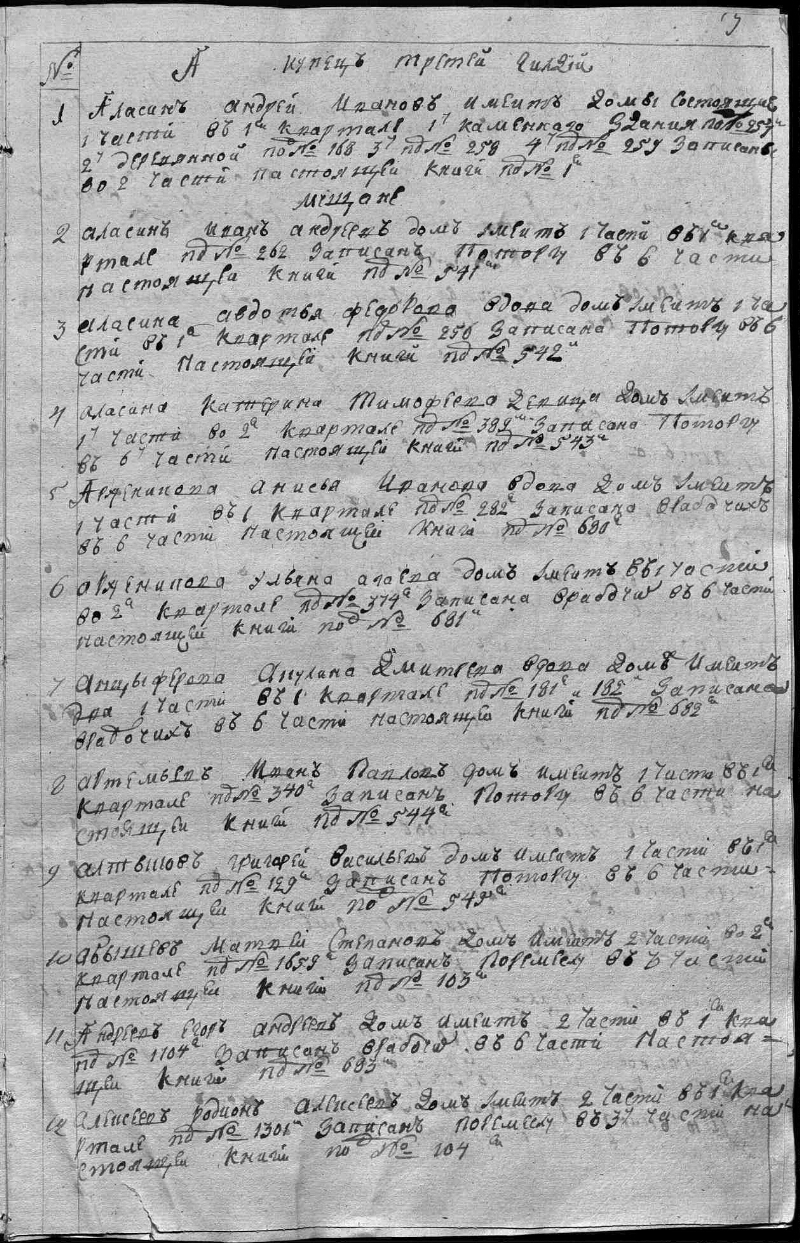 № А купецъ третей гилдіи
1 Аласинъ андрей Ивановъ имеитъ домы состоящие
1 части въ 1й квартале 1й каменнаго здания по № 257м
2й деревянной по № 168 3й пд № 258 4й пд № 259 записанъ
во 2 части настоящей книги пд № 1м
мщане
2 аласинъ иванъ андреевъ домъ имеитъ 1 части въ 1м ква
ртале пд № 262 записанъ поторгу въ 6 части
настоящей книги пд № 541м
3 аласина авдотья федорова вдова домъ имеитъ 1 ча
сти въ 1м квартале пд № 256 записана поторгу въ 6
части настоящей книги пд № 542м
4 аласина катерина тимофеева девица домъ имеитъ
1й части во 2м квартале пд № 389м записана поторгу
въ 6й части настоящей книги пд № 543м
5 анисья иванова вдова домъ имеитъ
1 части въ 1 квартале пд № 282м записана врабочихъ
въ 6 части настоящей книги пд № 680м
6 ульена домъ имеитъ въ 1 части
во 2м квартале пд № 374м записана врабочи въ 6 части
настоящей книги под № 681м
7 анцыферова акулина дмитрева вдова домъ имеитъ
два 1 части въ 1 квартале пд № 181м и 182м записана
врабочихъ въ 6 части настоящей книги пд № 682м
8 артемьевъ иванъ павловъ домъ имеитъ 1 части въ 1м
квартале пд № 340м записанъ поторгу въ 6 части на
стоящей книги пд № 544м
9 григорей васильевъ домъ имеитъ 1 части въ 1м
квартале пд № 129м записанъ поторгу въ 6 части
настоящей книги под № 549м
10 матвей степановъ домъ имеитъ 2 части во 2м
квартале пд № 1659м записанъ поремеслу въ части
настоящей книги пд № 103м
11 Андреевъ егоръ андреевъ домъ имеитъ 2 части въ 1м ква
пд № 1104м записанъ врабочи въ 6 части настоя=
щей книги пд № 683м
12 алексеевъ родионъ алексеевъ домъ имеитъ 2 части въ 1м ква
ртале пд № 1301м записанъ поремеслу въ 3й части на
стоящей книги под № 104м